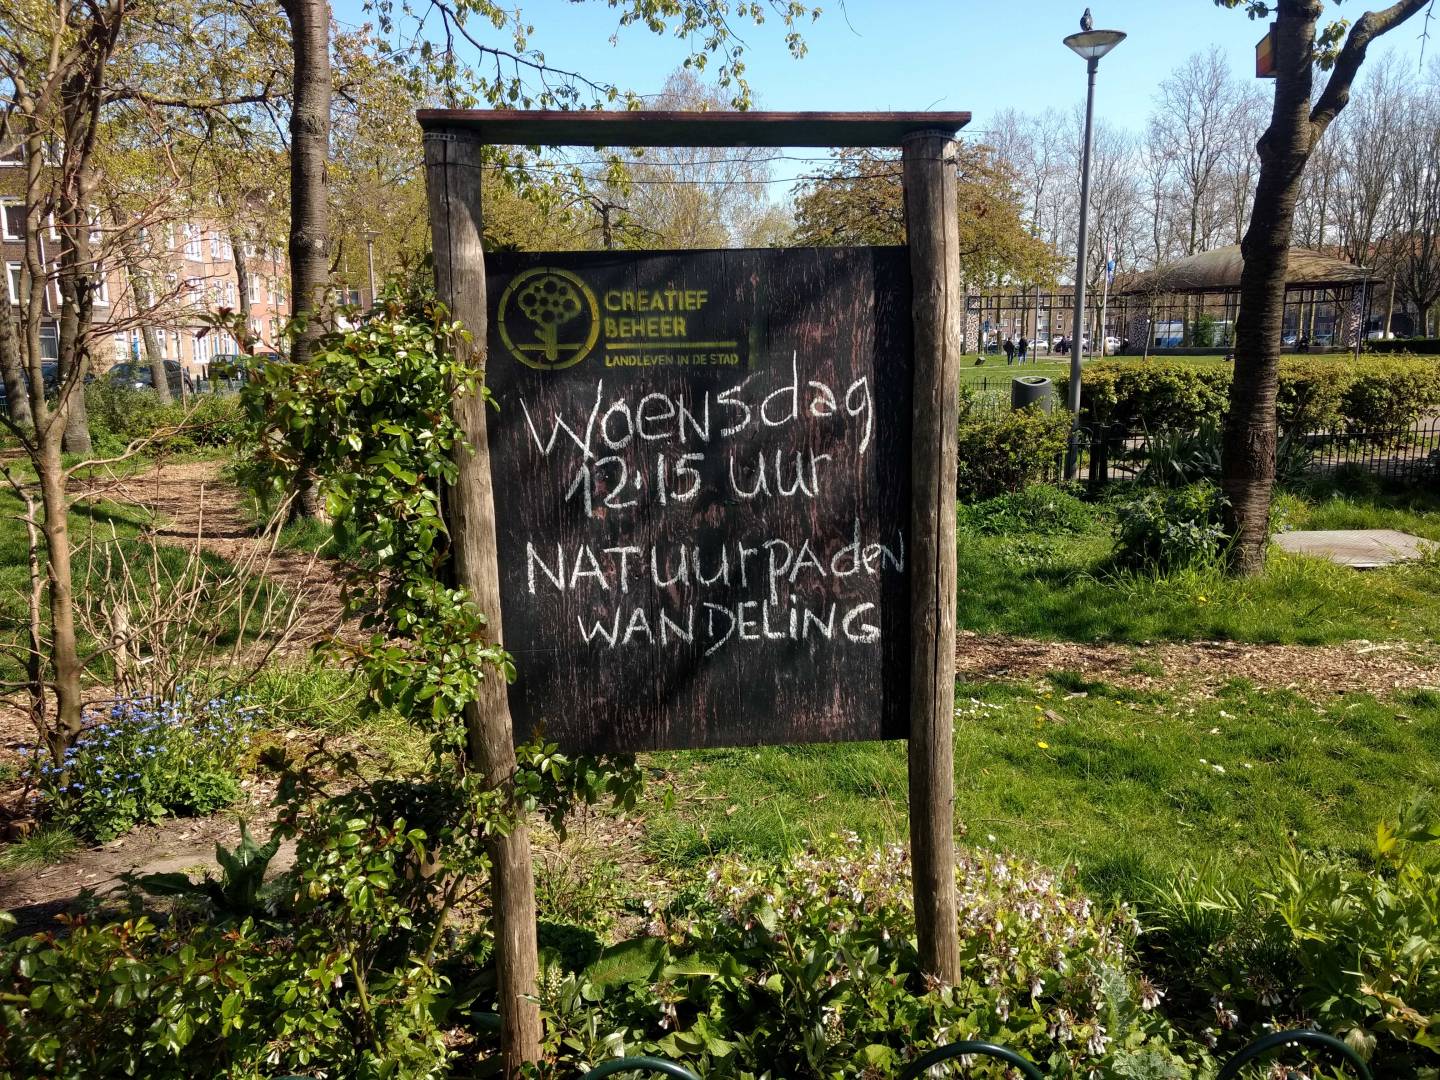 CREATIEF
BEHEER
LANDLEVEN IN DE STAD
Woensdag
12.15 uur
NATuurpAden
WANDELiNG